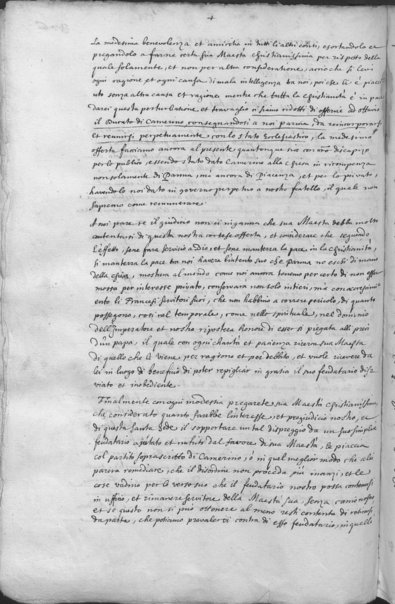 La medesima benevolenza et amicitia in tutti li altri conti, esortandolo et
pregandolo a farne certa sua Maestà Christianissima per rispetto della
quale solamente, et non per altra consideratione, anco che si levi
ogni ragione et ogni causa di mala intelligenza tra noi, poi che li è piaciuto
senza altra causa et ragione mentre che tutta la Christianità è in pace
darci questa perturbatione et travaglio ci siamo ridotti di offerire ad ottavio
il Ducato di Camerino consegnandosi a noi parma da reincorporarsi
et reunirsi perpetuamente con lo stato Ecclesiastico, la medesima
offerta facciamo ancora al presente quantunque sia con n\u00adostro discapito
per lo publico, essendo stato dato Camerino alla Chiesa in ricompenza
non solamente di Parma, ma ancora di Piacenza, et per lo privato,
havendolo noi dato in governo perpetuo a nostro fratello, il quale non
sapremo come remunerare.
A noi pare se il giuditio non ci inganna che sua Maestà debba molto
contentarsi di questa nostra cortese offerta, et considerare che seguendo
l'effetto, se ne farà servitio a Dio, et se ne manterrà la pace in la Christianità,
si manterrà la pace tra noi havendo ottenuto sua che Parma non eschi di mano
della chiesa, mostrarà al mondo come noi ancora tenemo per certo di non esser
mossa per interesse privato, conservarà non solo intieri, ma con accrescimento
li Francesi servitori suoi, che non habbino a correre pericolo, di quanto
posseggono, così nel temporale, come nello spirituale, nel dominio
dell'Imperatore et nostro riportera honore di esser si piegata alli preghi
d'un papa, il quale con ogni charità et patienza ricerca sua Maestà
di quello che le viene per ragione et per debito, et vuole ricevere da
lei in luogo di beneficio di poter repigliar in gratia il suo feudatario disviato
et inobediente.
Finalmente con ogni modestia pregarete sua Maestà Christianissima
che considerato quanto sarebbe l'interesse, et pregiuditio nostro, et
di questa santa sede il sopportare un tal dispreggio da un suo semplice
feudatario aiutato et nutrito dal favore di sua Maestà, le piaccia
col partito soprascritto di Camerino, o in quel meglior modo che a lei
parerà remediare, che il disordine non proceda più inanzi, et le
cose vadino per lo verso suo che il feudatario nostro possa contenersi
in ufficio, et rimanere servitore della Maestà sua, senza
et se questo non si può ottenere al meno resti contenta di
da parte, che potiamo prevalerci contra di esso feudatario, in quelli